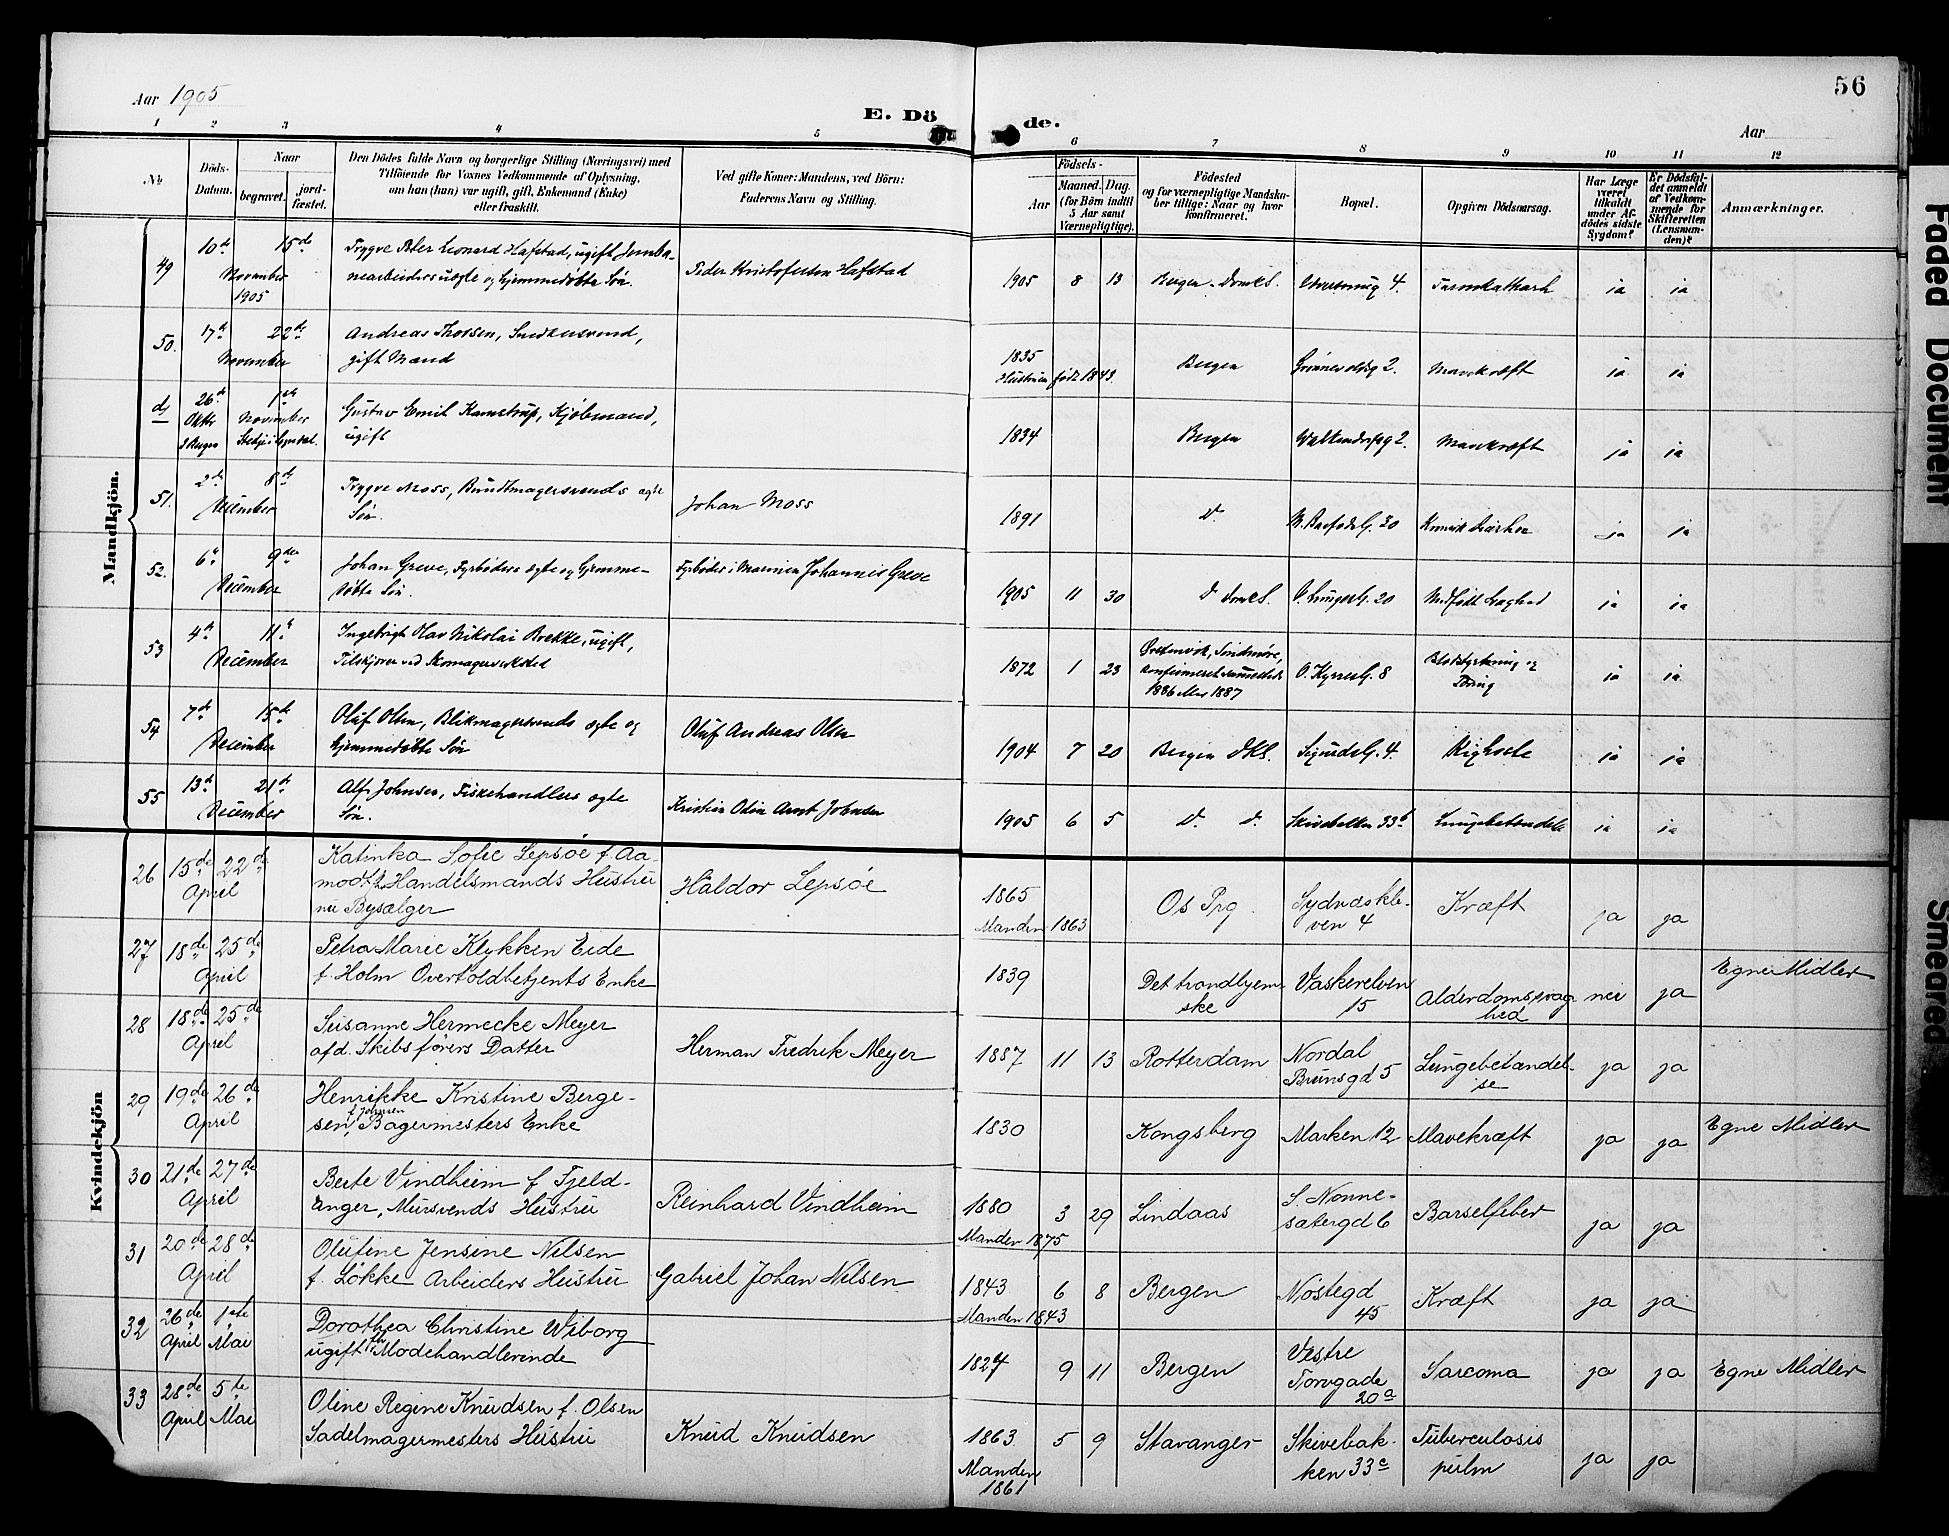 56
Aar 1905
E. Dö
de.
Aar
1 2 3 4 5 6 7 8 9 10 11 12
No
Döds-
Datum.
Naar
begravet.
jord-
fæstet.
Den Dödes fulde Navn og borgerlige Stilling (Næringsvei) med
Tilföiende for Voxnes Vedkommende af Oplysning,
om han (hun) var ugift, gift, Enkemand (Enke)
eller fraskilt.
Ved gifte Koner: Mandens, ved Börn:
Faderens Navn og Stilling.
Födsels-
Aar
Maaned. Dag.
(for Börn indtil
5 Aar samt
Værnepligtige).
Födested
og for værnepligtige Mandska-
ber tillige: Naar og hvor
konfirmeret.
Bopæl.
Opgiven Dödsaarsag.
Har Læge
været
tilkaldt
under Af-
dödes sidste
Sygdom?
Er Dödsfal-
det anmeldt
af Vedkom-
mende for
Skifteretten
(Lensman-
den)?
Anmærkninger.
Mandkjön.
49 10de 15de
November
1905
Trygve Peter Leonard Hafstad, ugift Jernba-
nearbeiders uægte og hjemmedøbte Søn.
Peder Kristofersen Hafstad
1905 8 13 Bergen Domks. 4. Tarmkatharh ja ja
50. 17de 22de
November
Andreas Thorsen, Snedkersvend,
gift Mand
1835
Hustruen født 1843.
Bergen 2. Mavekræft ja ja
26de 1ste
Oktbr November
Gustav Emil Kamstrup, Kjøbmand,
ugift
1834 Bergen 2. Mavekræft ja ja
51. 2de 8de
December
Trygve Moss, Bundtmagersvends ægte
Søn.
Johan Moss
1891 D. 30 ja ja
52. 6te 9de
December
Johan Greve, Fyrbøders ægte og hjemme-
døbte Søn.
Fyrbøder i Marinen Johannes Greve
1905 11 30 D Domks. 20 Medfødt Svaghed ja ja
53 4de 11te
December
Ingebrigt Olav Nikolai Brekke, ugift,
Tilskjærer ved Skomagerverksted
1872 1 23 Søndmøre,
konfirmeret sammesteds
1886 eller 1887
O. Kyrresg. 8 Blodstyrtning og
Tæring
ja ja
54 7de 15de
December
Oluf Olsen, Blikmagersvends ægte og
hjemmedøbte Søn
Oluf Andreas Olsen
1904 7 20 Bergen DKS. Sigurdsg. 4. Kighoste ja ja
55 13de 21de
December
Alf Johnsen, Fiskehandlers ægte
Søn.
Kristian Odin Arnt Johnsen
1905 6 5 D. D. Skivebakken 33b Lungebetændelse ja ja
Kvindekjön
26 15de 22de
April
Katinka Sofie Lepsøe f. Aa-
modt, Handelsmands Hustru
nu Bysælger
Haldor Lepsøe
1865
Manden 1863
Os Prg. Sydnæskle-
ven 4
Kræft ja ja
27 18de 25de
April
Petra Marie Klykken Eide
f. Holm Overtoldbetjents Enke
1839 Det trondhjem-
ske
Vaskerelven
15
Alderdomssvag-
hed
nei ja Egne Midler
28 18de 25de
April
Susanne Hermecke Meyer
afd. Skibsførers Datter
Herman Fredrik Meyer
1887 11 13 Rotterdam Nordal
Brunsgd 5
Lungebetændel-
se
ja ja
29 19de 26de
April
Henrikke Kristine Berge-
sen, f Johnsen Bagermesters Enke
1830 Kongsberg Marken 12 Mavekræft ja ja Egne Midler
30 21de 27de
April
Berte Vindheim f Fjeld-
anger, Mursvends Hustru
Reinhard Vindheim
1880 3 29
Manden 1875
Lindaas S. Nonne-
sætergd 6
Barselfeber ja ja
31 20de 28de
April
Olufine Jensine Nilsen
f. Løkke Arbeiders Hustru
Gabriel Johan Nilsen
1843 6 8
Manden 1843
Bergen Nøstegd
45
Kræft ja ja
32 26de 1ste
April Mai
Dorothea Christine Wiborg
ugift fh Modehandlerinde
1827 9 11 Bergen Vestre
Torvgade
20a
Sarcoma ja ja Egne Midler
33 28de 5te
April Mai
Oline Regine Knudsen f. Olsen
Sadelmagermesters Hustru
Knud Knudsen
1863 5 9
Manden
1861
Stavanger Skivebak-
ken 33c
Tuberculosis
pulm
ja ja
Faded Document
Smeared